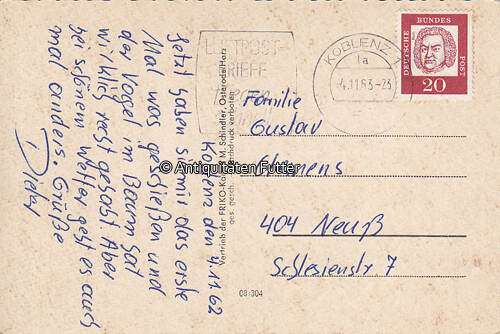 Koblenz den 4.11.62
Jetzt haben sie mir das erste
Mal was geschießen und
der Vogel im Baum hat
wirklich recht gehabt. Aber
bei schönem Wetter geht es auch
mal anders. Grüße
Dieter
Vertrieb der FRIKO-Karten M. Schindler, Osterode/Harz
ges. gesch. Nachdruck verboten
LUFTPOST
BRIEFE
KOBLENZ
1a
-4.11.63-23
DEUTSCHE
BUNDES
POST
20
Familie
Gustav
Clemens
404 Neuß
Schlesienstr 7
08/304
© Antiquitäten Futter